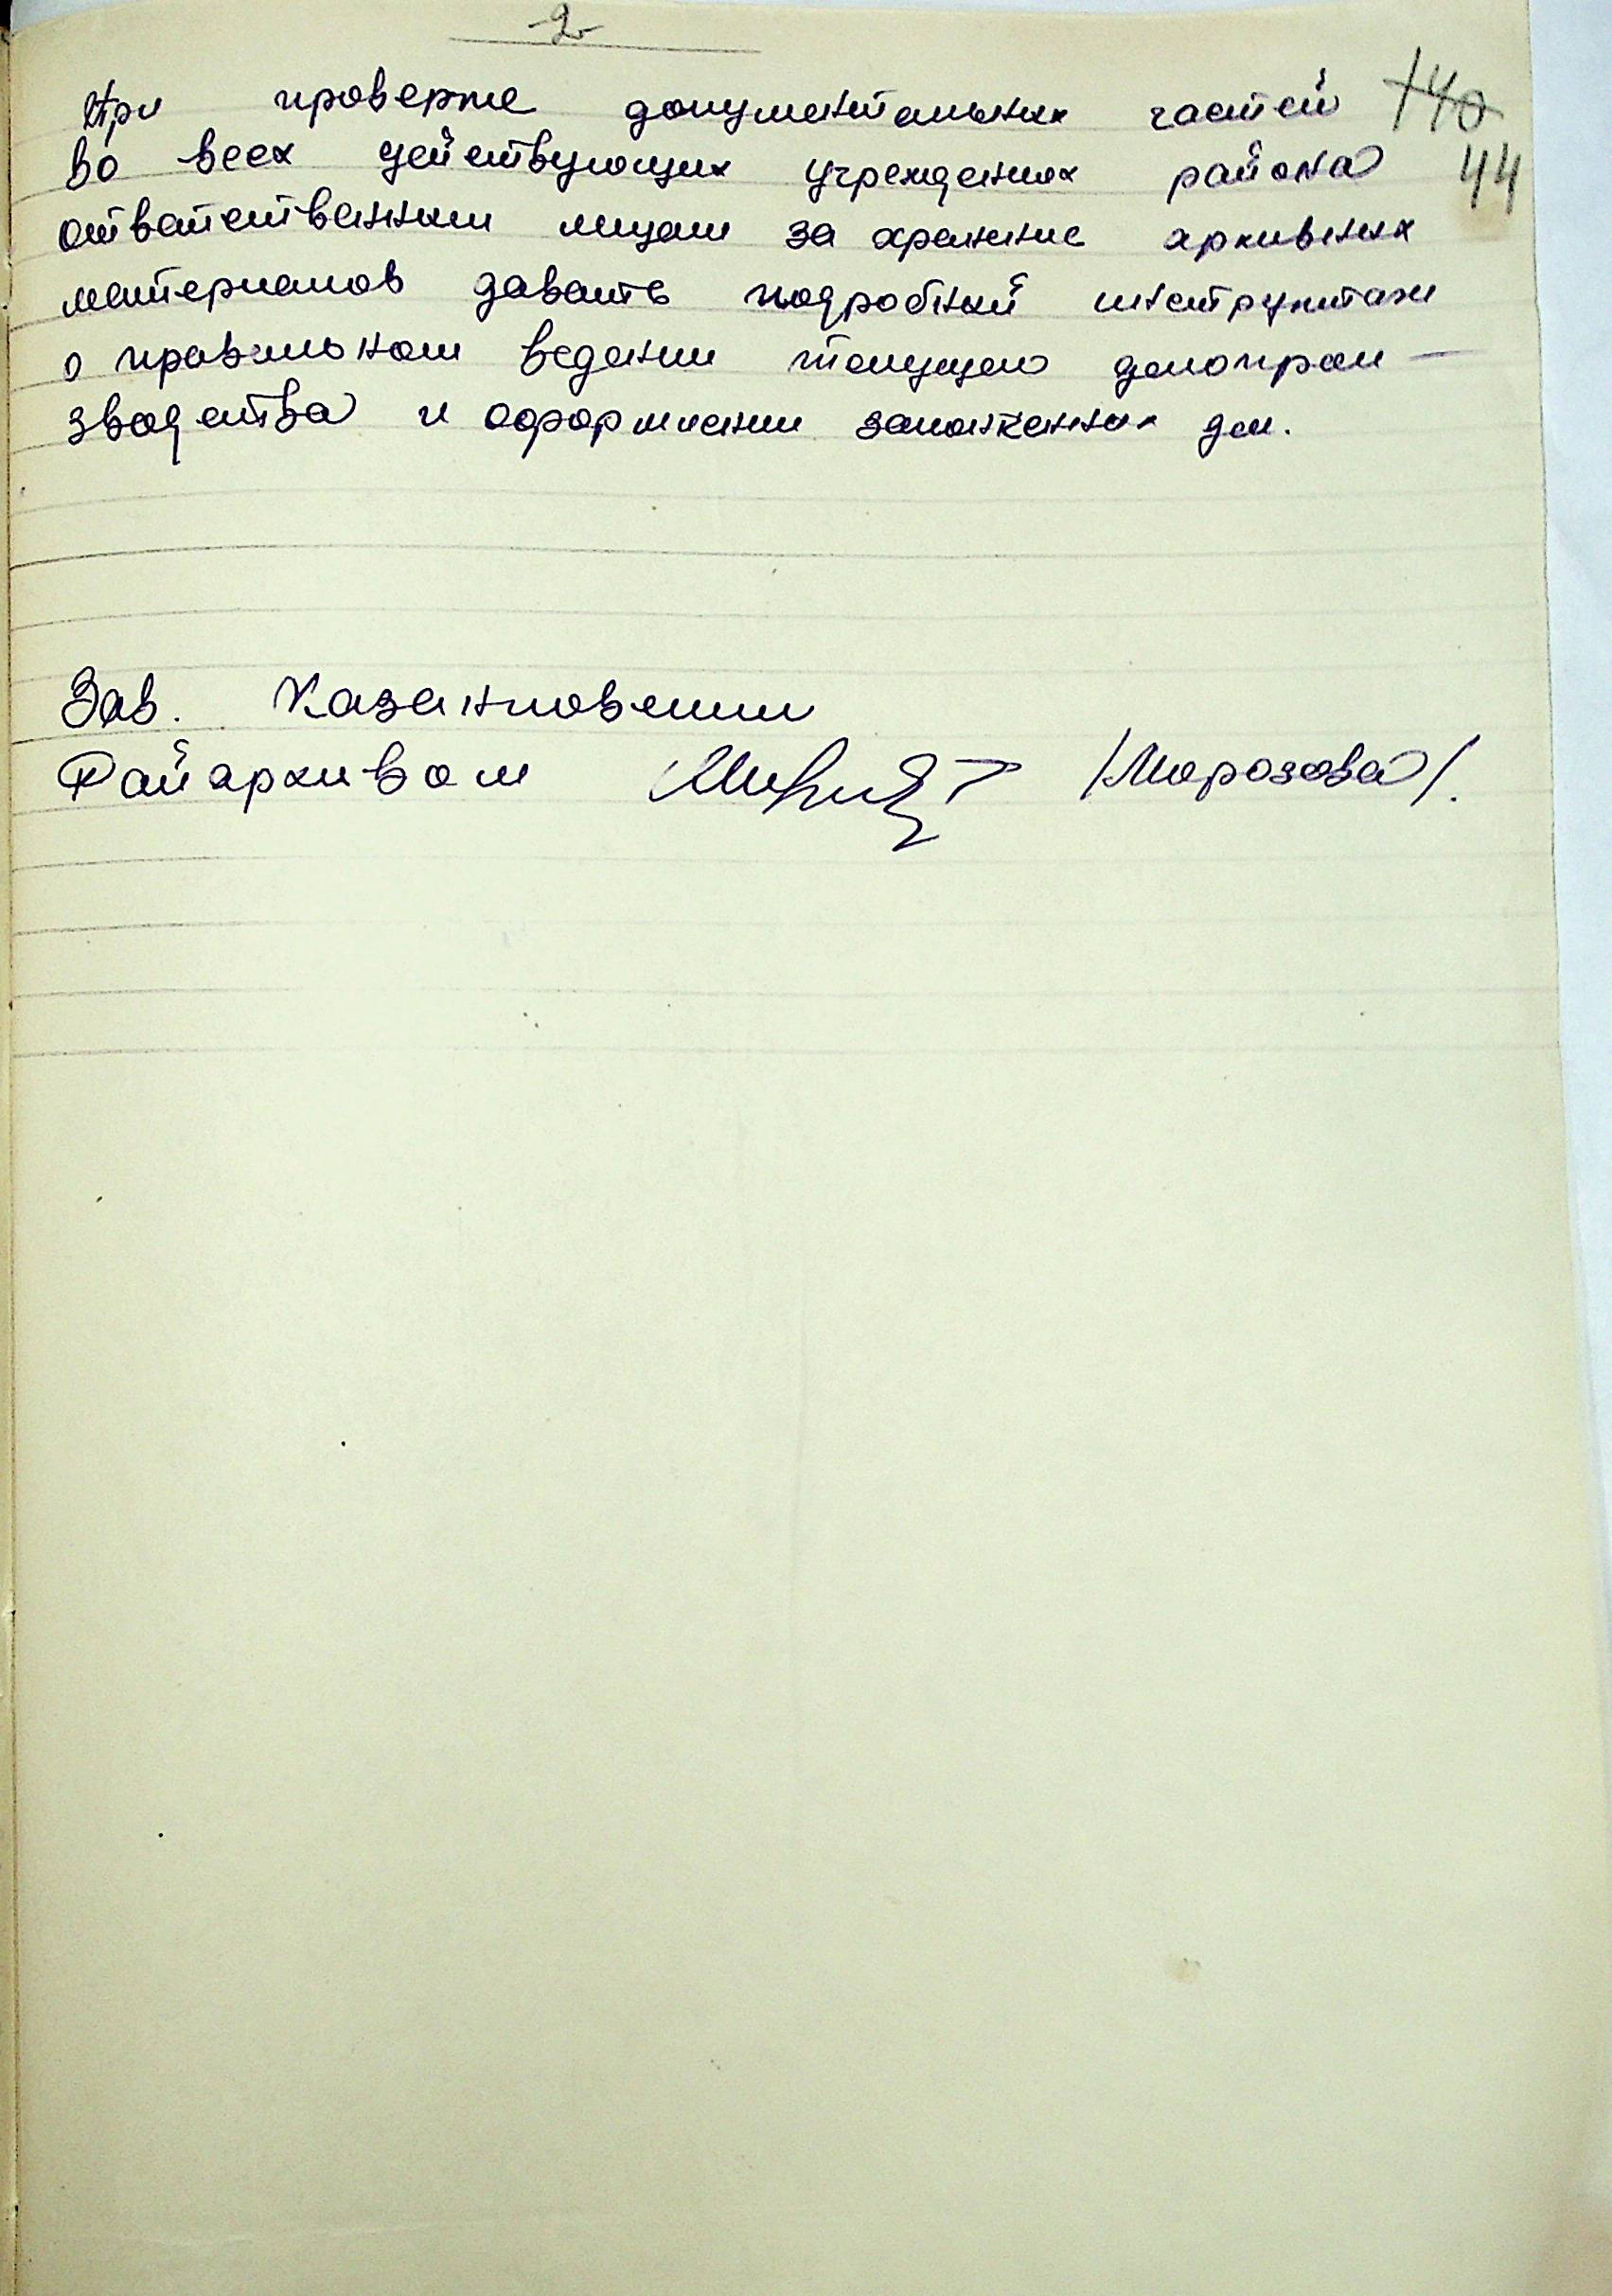 -2-
При проверке документальных частей 140
во всех действующих учреждениях района 44
ответственным лицам за хранение архивных
материалов давать подробный инструктаж
о правильном ведении текущего делопрои-
зводства и оформлении законченных дел.
Зав. Казанковским
Райархивом /Морозова/.